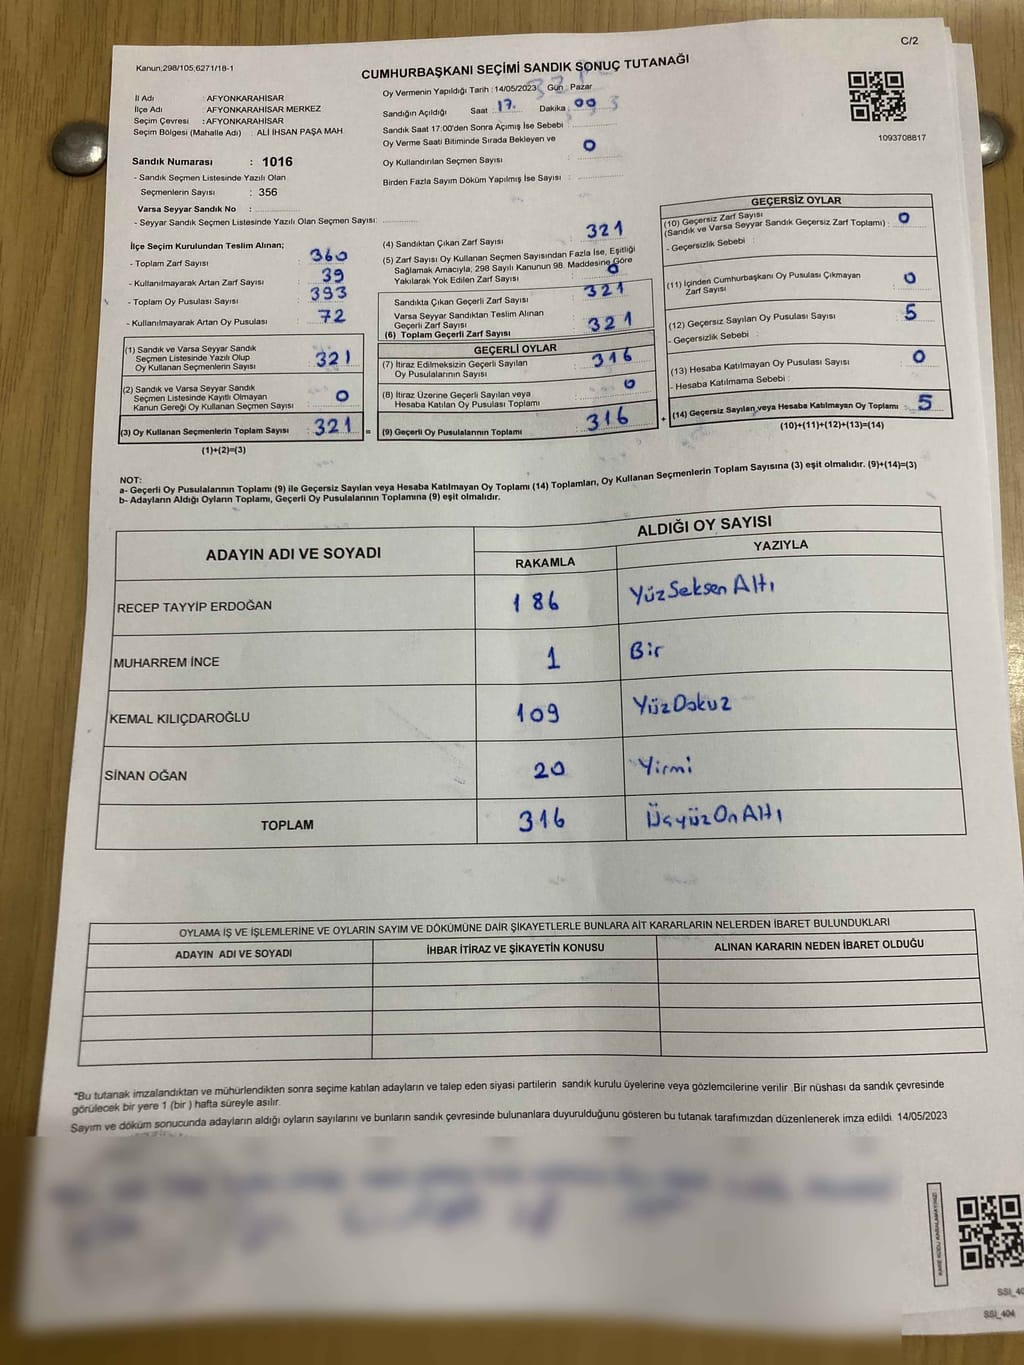 C/2
Kanun;298/105;6271/18-1
CUMHURBAŞKANI SEÇİMİ SANDIK SONUÇ TUTANAĞI
1093708817
İl Adı : AFYONKARAHİSAR
İlçe Adı : AFYONKARAHİSAR MERKEZ
Seçim Çevresi : AFYONKARAHİSAR
Seçim Bölgesi (Mahalle Adı) : ALİ İHSAN PAŞA MAH
Sandık Numarası : 1016
- Sandık Seçmen Listesinde Yazılı Olan
Seçmenlerin Sayısı : 356
Varsa Seyyar Sandık No :
- Seyyar Sandık Seçmen Listesinde Yazılı Olan Seçmen Sayısı:
Oy Vermenin Yapıldığı Tarih : 14/05/2023 Gün : Pazar
Sandığın Açıldığı Saat : 17. Dakika 00
Sandık Saat 17:00'den Sonra Açımış İse Sebebi :
Oy Verme Saati Bitiminde Sırada Bekleyen ve
Oy Kullandırılan Seçmen Sayısı : 0
Birden Fazla Sayım Döküm Yapılmış İse Sayısı :
İlçe Seçim Kurulundan Teslim Alınan;
- Toplam Zarf Sayısı : 360
- Kullanılmayarak Artan Zarf Sayısı : 39
- Toplam Oy Pusulası Sayısı : 393
- Kullanılmayarak Artan Oy Pusulası : 72
(1) Sandık ve Varsa Seyyar Sandık
Seçmen Listesinde Yazılı Olup
Oy Kullanan Seçmenlerin Sayısı : 321
(2) Sandık ve Varsa Seyyar Sandık
Seçmen Listesinde Kayıtlı Olmayan
Kanun Gereği Oy Kullanan Seçmen Sayısı : 0
(3) Oy Kullanan Seçmenlerin Toplam Sayısı : 321 =
(1)+(2)=(3)
(4) Sandıktan Çıkan Zarf Sayısı : 321
(5) Zarf Sayısı Oy Kullanan Seçmen Sayısından Fazla İse, Eşitliği
Sağlamak Amacıyla, 298 Sayılı Kanunun 98. Maddesine Göre
Yakılarak Yok Edilen Zarf Sayısı : 0
Sandıkta Çıkan Geçerli Zarf Sayısı : 321
Varsa Seyyar Sandıktan Teslim Alınan
Geçerli Zarf Sayısı
(6) Toplam Geçerli Zarf Sayısı : 321
GEÇERLİ OYLAR
(7) İtiraz Edilmeksizin Geçerli Sayılan
Oy Pusulalarının Sayısı : 316
(8) İtiraz Üzerine Geçerli Sayılan veya
Hesaba Katılan Oy Pusulası Toplamı : 0
(9) Geçerli Oy Pusulalarının Toplamı : 316 +
GEÇERSİZ OYLAR
(10) Geçersiz Zarf Sayısı
(Sandık ve Varsa Seyyar Sandık Geçersiz Zarf Toplamı) : 0
- Geçersizlik Sebebi :
(11) İçinden Cumhurbaşkanı Oy Pusulası Çıkmayan
Zarf Sayısı : 0
(12) Geçersiz Sayılan Oy Pusulası Sayısı : 5
- Geçersizlik Sebebi :
(13) Hesaba Katılmayan Oy Pusulası Sayısı : 0
- Hesaba Katılmama Sebebi :
(14) Geçersiz Sayılan veya Hesaba Katılmayan Oy Toplamı : 5
(10)+(11)+(12)+(13)=(14)
NOT:
a- Geçerli Oy Pusulalarının Toplamı (9) ile Geçersiz Sayılan veya Hesaba Katılmayan Oy Toplamı (14) Toplamları, Oy Kullanan Seçmenlerin Toplam Sayısına (3) eşit olmalıdır. (9)+(14)=(3)
b- Adayların Aldığı Oyların Toplamı, Geçerli Oy Pusulalarının Toplamına (9) eşit olmalıdır.
ADAYIN ADI VE SOYADI
ALDIĞI OY SAYISI
RAKAMLA YAZIYLA
RECEP TAYYİP ERDOĞAN 186 YüzSeksenAltı
MUHARREM İNCE 1 Bir
KEMAL KILIÇDAROĞLU 109 YüzDokuz
SİNAN OĞAN 20 Yirmi
TOPLAM 316 ÜçyüzOnAltı
OYLAMA İŞ VE İŞLEMLERİNE VE OYLARIN SAYIM VE DÖKÜMÜNE DAİR ŞİKAYETLERLE BUNLARA AİT KARARLARIN NELERDEN İBARET BULUNDUKLARI
ADAYIN ADI VE SOYADI İHBAR İTİRAZ VE ŞİKAYETİN KONUSU ALINAN KARARIN NEDEN İBARET OLDUĞU
*Bu tutanak imzalandıktan ve mühürlendikten sonra seçime katılan adayların ve talep eden siyasi partilerin sandık kurulu üyelerine veya gözlemcilerine verilir .Bir nüshası da sandık çevresinde
görülecek bir yere 1 (bir ) hafta süreyle asılır.
Sayım ve döküm sonucunda adayların aldığı oyların sayılarını ve bunların sandık çevresinde bulunanlara duyurulduğunu gösteren bu tutanak tarafımızdan düzenlenerek imza edildi. 14/05/2023
KARE KODU KARALAMAYINIZ!
SSI_40
SSI_404